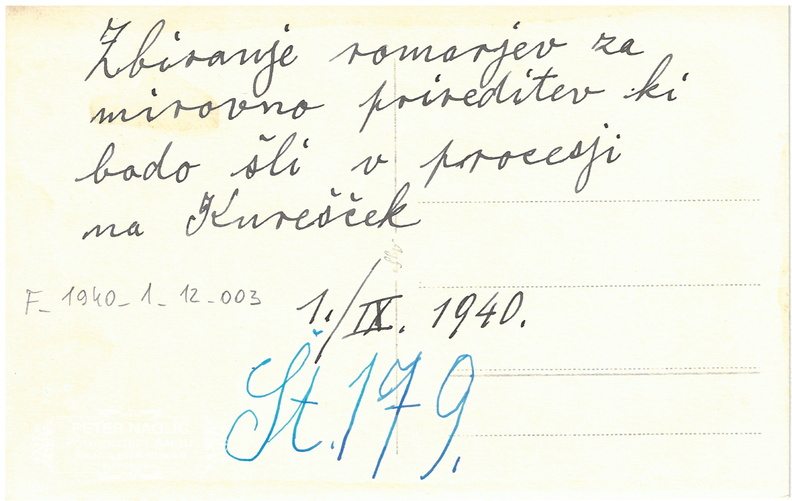 Zbiranje romarjev za
mirovno prireditev ki
bodo šli v procesji
na Kurešček
F_1940_1_12_003
1./IX. 1940.
Št. 179.